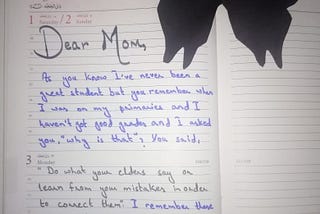 1
Saturday
2
Sunday
Dear Mom,
As you know I've never been a
great student but you remember when
I was on my primaries and I
haven't got good grades and I asked
you, "why is that"? You said,
3
"Do what your elders say or
learn from your mistakes in order
to correct them" I remember those